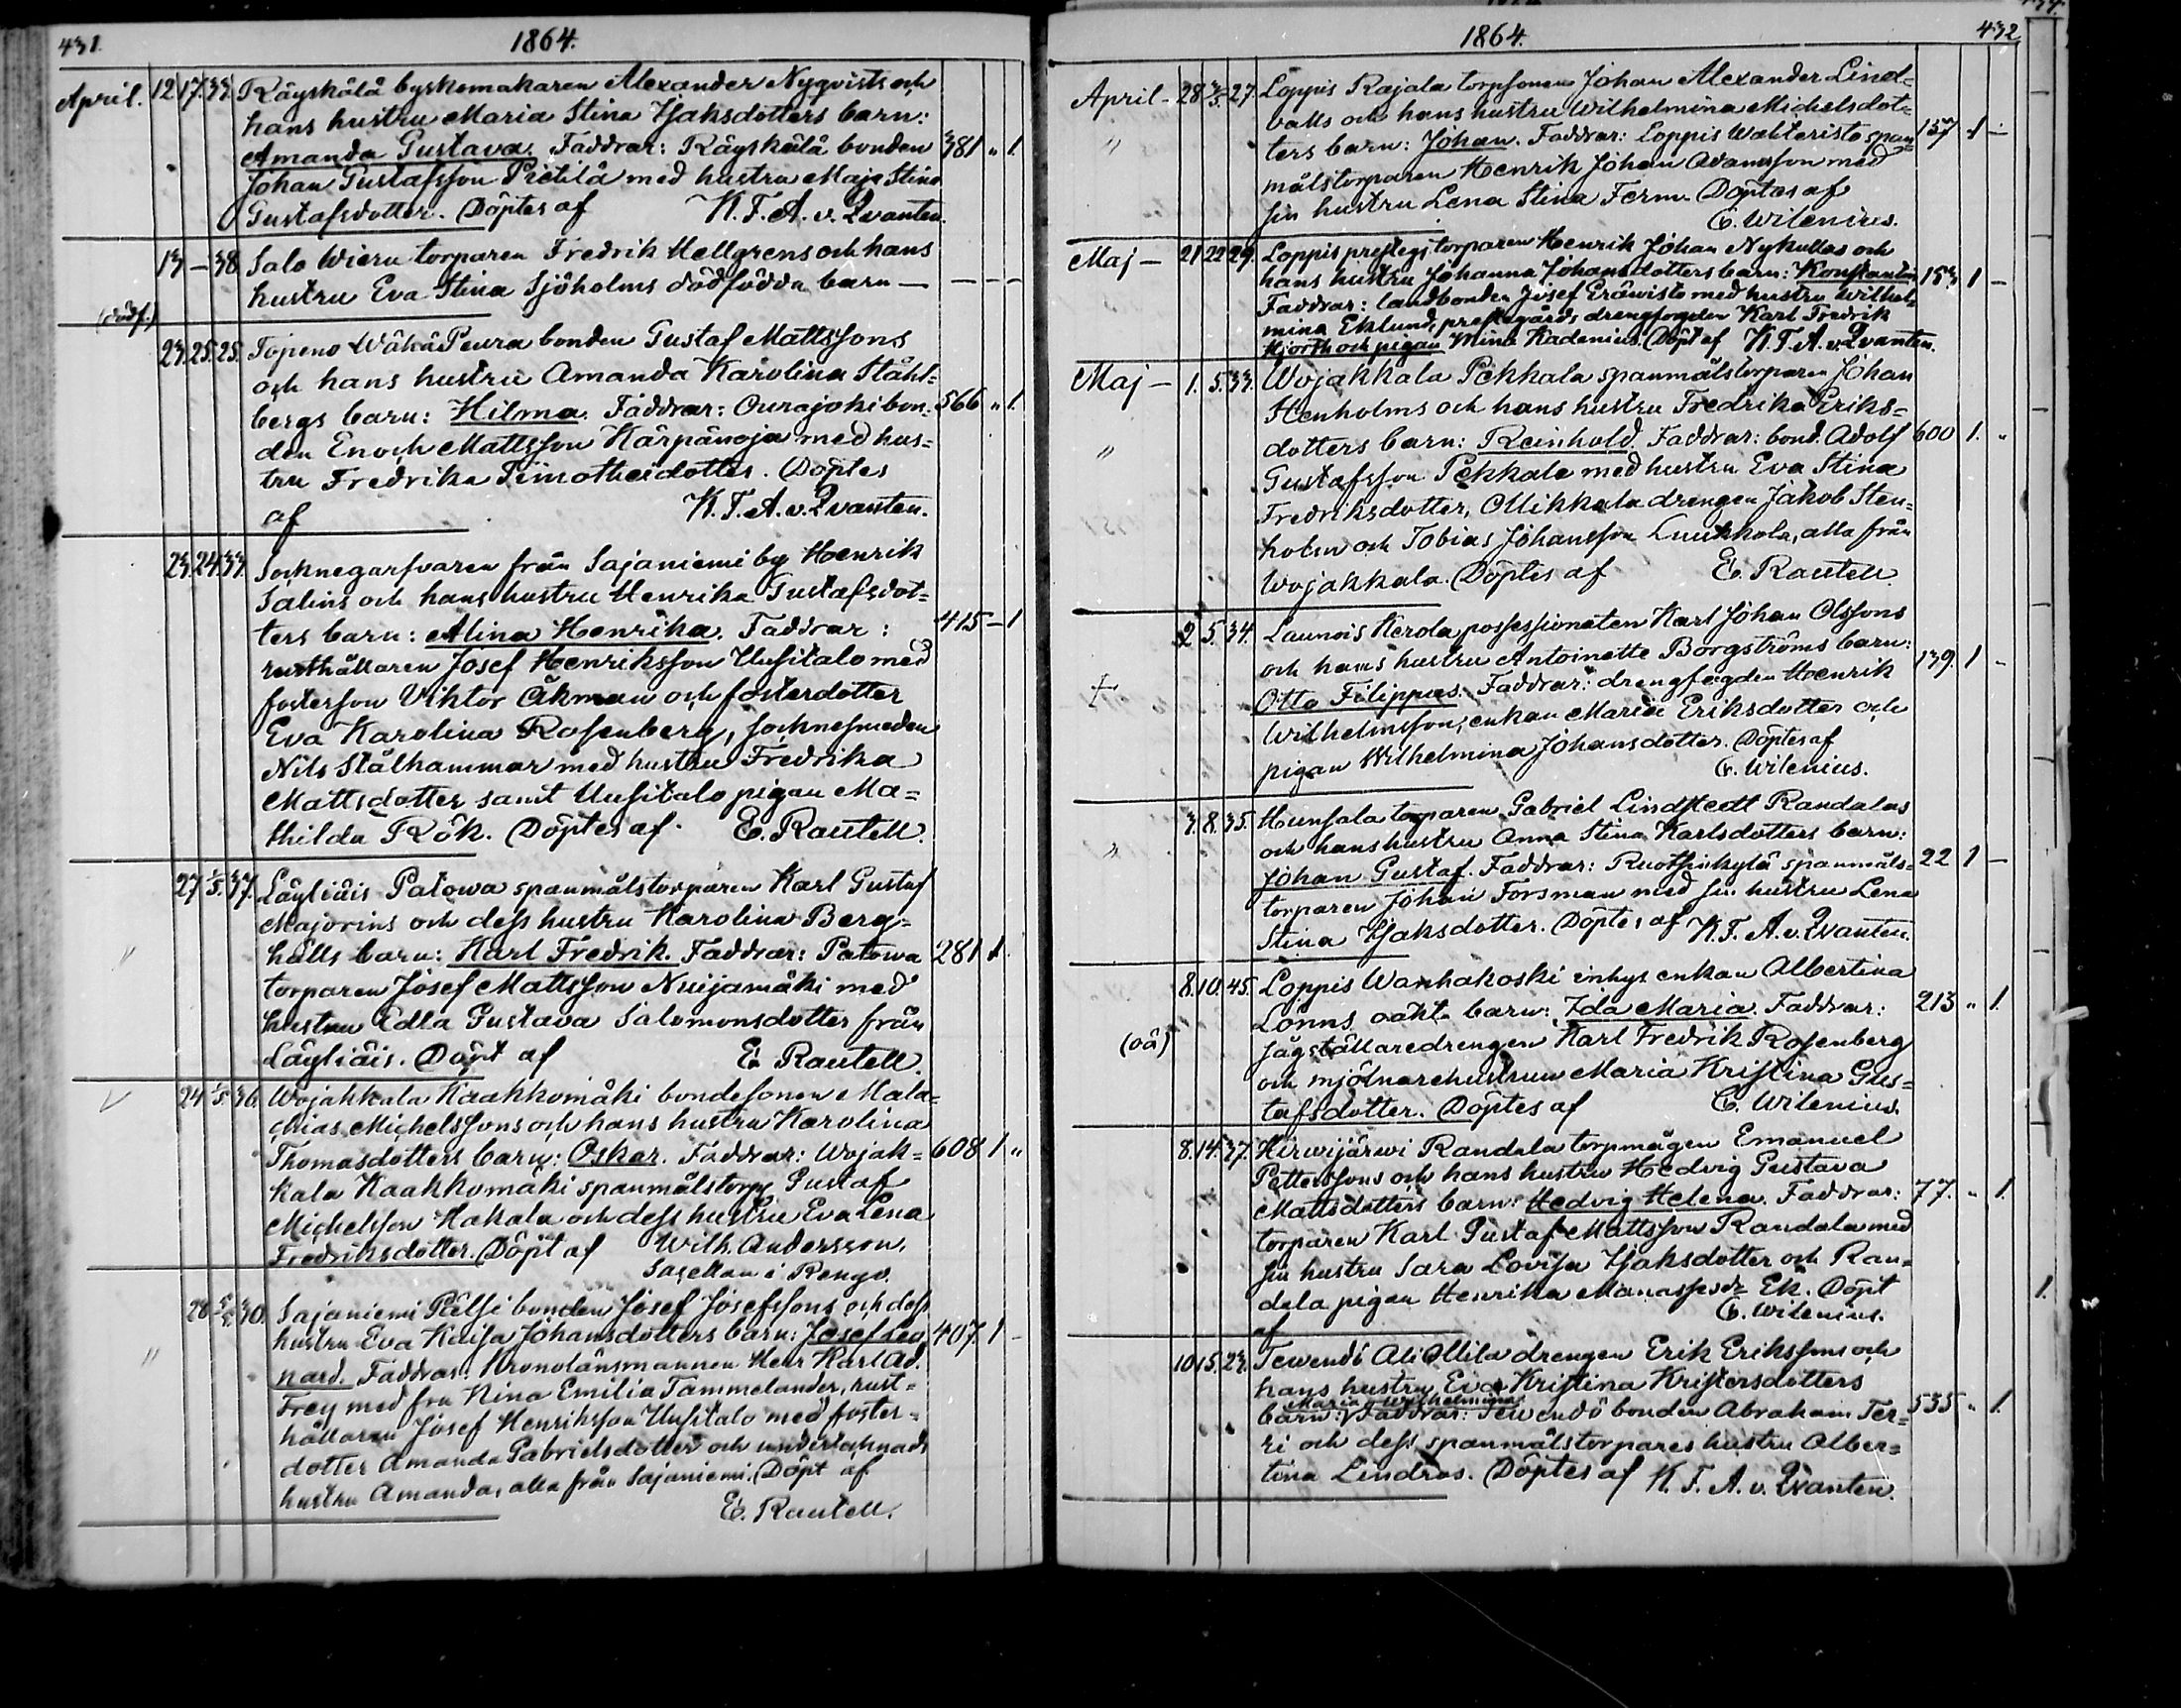 431.
1864.
April. 12 17. 33. Räyskälä byskomakaren Alexander Nyqvists och
hans hustru Maria Stina Isaksdotters barn:
Amanda Gustava. Faddrar: Räyskälä bonden 381 " 1.
Johan Gustafsson Pietilä med hustru Maja Stina
Gustafsdotter. Döptes af K. F. A. v. Qvanten.
13 — 38. Salo Wieru torparen Fredrik Hellgrens och hans
hustru Eva Stina Sjöholms dödfödda barn — — — —
(dödf.)
23. 25. 25. Topeno Wähä Peura bonden Gustaf Mattssons
och hans hustru Amanda Karolina Ståhl=
bergs barn: Hilma. Faddrar: Ourajoki bon= 566 " 1.
den Enoch Mattsson Kärpänoja med hus=
tru Fredrika Timotheidotter. Döptes
af K. F. A. v. Qvanten.
23. 24. 33. Socknegarfvaren från Sajaniemi by Henrik
Salins och hans hustru Henrika Gustafsdot=
ters barn: Alina Henrika. Faddrar: 415 — 1
rusthållaren Josef Henriksson Uusitalo med
fosterson Viktor Åkman och fosterdotter
Eva Karolina Rosenberg, socknesmeden
Nils Stålhammar med hustru Fredrika
Mattsdotter samt Uusitalo pigan Ma=
thilda Rök. Döptes af E. Rautell.
27 1/5. 37. Läyliäis Patowa spanmålstorparen Karl Gustaf
Majorins och dess hustru Karolina Berg=
hälls barn: Karl Fredrik. Faddrar: Patowa 281 1.
" torparen Josef Mattsson Nuijamäki med
hustru Edla Gustava Salomonsdotter från
Läyliäis. Döpt af E. Rautell.
V 24 1/5. 36. Wojakkala Kaakkomäki bondesonen Mala=
chias Michelssons och hans hustru Karolina
Thomasdotters barn: Oskar. Faddrar: Wojak= 608 1 "
kala Kaakkomäki spanmålstorp. Gustaf
Michelsson Hakala och dess hustru Eva Lena
Fredriksdotter. Döpt af Wilh. Andersson,
Sacellan i Rengo.
28 5/5. 30. Sajaniemi Pälsi bonden Josef Josefssons och dess
hustru Eva Kaisa Johansdotters barn: Josef Leo 407. 1 -
" nard. Faddrar: Kronolänsmannen Herr Karl Ad.
Frey med fru Nina Emilia Tammelander, rust=
hållaren Josef Henriksson Uusitalo med foster=
dotter Amanda Gabrielsdotter och
hustru Amanda, alla från Sajaniemi. Döpt af
E. Rautell.
1864.
432
April - 28 27. Loppis Rajala torpsonen Johan Alexander Lind=
valls och hans hustru Wilhelmina Michelsdot=
" ters barn: Johan. Faddrar: Loppis Wahteristo span= 157 1 —
målstorparen Henrik Johan Adamsson med
sin hustru Lena Stina Ferm. Döptes af
C. Wilenius.
Maj — 21 22 29. Loppis prestegs torparen Henrik Johan Nykullas och
hans hustru Johanna Johansdotters barn: Konstantin 153 1 —
Faddrar: landbonden Josef Eräwisto med hustru Wilhel=
mina Eklund, prestegårds drengfogden Karl Fredrik
Hjorth och pigan Mina Kadenius. Döpt af K. F. A. v. Qvanten.
Maj — 1. 5. 33. Wojakkala Pekkala spanmålstorparen Johan
Stenholms och hans hustru Fredrika Eriks=
" dotters barn: Reinhold. Faddrar: bond. Adolf 600 1. "
Gustafsson Pekkala med hustru Eva Stina
Fredriksdotter, Ollikkala drengen Jakob Sten=
holm och Tobias Johansson Luukkola, alla från
Wojakkala. Döptes af E. Rautell
2 5. 34. Launois Kerola possessionaten Karl Johan Olssons
och hans hustru Antoinette Borgströms barn: 139. 1 -
+ Otto Filippus. Faddrar: drengfogden Henrik
Wilhelmsson, enkan Maria Eriksdotter och
pigan Wilhelmina Johansdotter. Döptes af
C. Wilenius.
3. 8. 35. Hunsala torparen Gabriel Lindstedt Randalas
" och hans hustru Anna Stina Karlsdotters barn:
Johan Gustaf. Faddrar: Ruotsinkylä spanmåls= 22 1 —
torparen Johan Forsman med sin hustru Lena
Stina Isaksdotter. Döptes af K. F. A. v. Qvanten.
8. 10. 45. Loppis Wanhakoski inhys enkan Albertina
Lönns oäkta barn: Ida Maria. Faddrar: 213 " 1.
(oä) sågställaredrengen Karl Fredrik Rosenberg
och mjölnarehustrun Maria Kristina Gus=
tafsdotter. Döptes af C. Wilenius.
8. 14. 37. Hirwijärwi Randala torpmågen Emanuel
Petterssons och hans hustru Hedvig Gustava
Mattsdotters barn: Hedvig Helena. Faddrar: 77. " 1.
torparen Karl Gustaf Mattsson Randala med
sin hustru Sara Lovisa Isaksdotter och Ran=
dala pigan Henrika Manassesdr Ek. Döpt
af C. Wilenius.
1.
10 15. 23. Tewendö Ali Ollila drengen Erik Erikssons och
hans hustru Eva Kristina Kristersdotters
Maria Wilhelmina
barn: V Faddrar: Tewendö bonden Abraham Ter= 535 " 1.
ri och dess spanmålstorpares hustru Alber=
tina Lindros. Döptes af K. F. A. v. Qvanten.